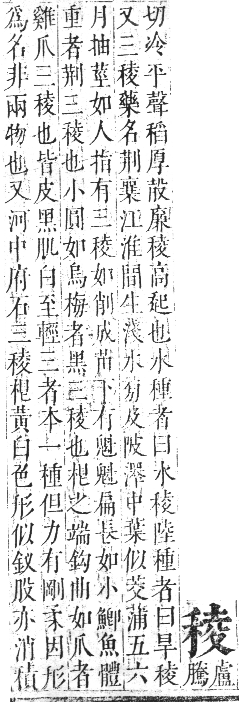 稜
盧
騰
切冷平聲稻厚殼廉稜高起也水種者曰水稜陸種者曰旱稜
又三稜藥名荆襄江淮間生淺水旁及陂澤中葉似茭蒲五六
月抽莖如人指有三稜如削成苗下有魁魁扁長如小鯽魚體
重者荆三稜也小圓如烏梅者黑三稜也根之端鉤曲如爪者
雞爪三稜也皆皮黑肌白至輕三者本一種但力有剛柔因形
爲名非兩物也又河中府石三稜根黃白色形似釵股亦消積